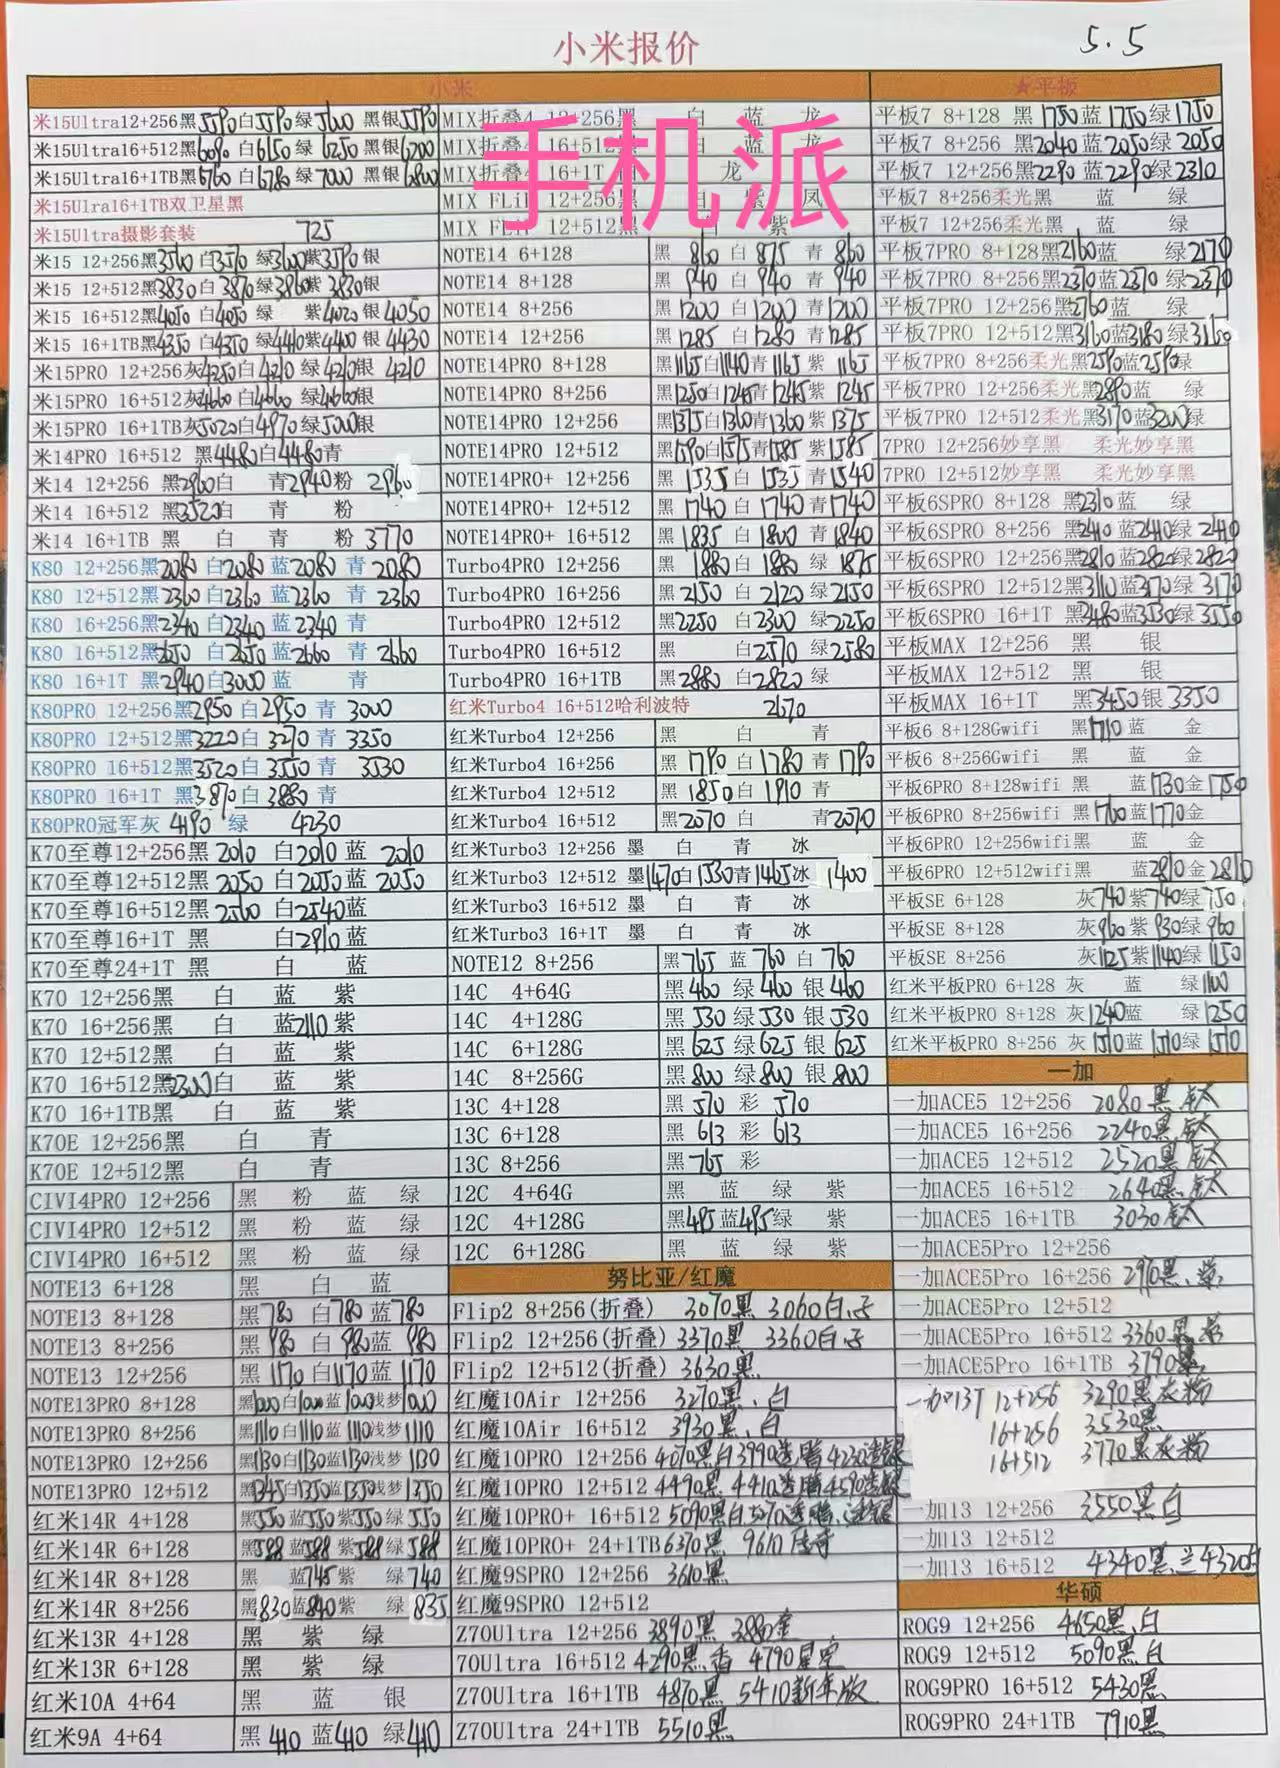 小米报价
5.5
手机派
小米
米15Ultra12+256黑5590白5590绿5600 黑银5590
米15Ultra16+512黑6090白6150绿6250黑银6200
米15Ultra16+1TB黑6760白6780绿7000黑银6800
米15Ulra16+1TB双卫星黑
米15Ultra摄影套装 725
米15 12+256黑3560白3570绿3600紫3590银
米15 12+512黑3830白3870绿3860紫3830银
米15 16+512黑4050白4050绿 紫4020银4050
米15 16+1TB黑4350白4350绿4410紫4400银4430
米15PRO 12+256灰4250白4210绿4210银4210
米15PRO 16+512灰4660白4660绿4660银
米15PRO 16+1TB灰5020白4970绿5000银
米14PRO 16+512 黑4480白4480青
米14 12+256 黑2960白 青2940粉 2960
米14 16+512 黑3520白 青 粉
米14 16+1TB 黑 白 青 粉 3770
K80 12+256黑2080白2080蓝2080青2080
K80 12+512黑2360白2360蓝2360青2360
K80 16+256黑2340白2340蓝2340青
K80 16+512黑2650白2650蓝2660青2660
K80 16+1T 黑2940白3000蓝 青
K80PRO 12+256黑2950白2950青3000
K80PRO 12+512黑3220白3270青3350
K80PRO 16+512黑3520白3550青3530
K80PRO 16+1T 黑3870白3880青
K80PRO冠军灰 4190 绿 4230
K70至尊12+256黑2010白2010蓝2010
K70至尊12+512黑2050白2050蓝2050
K70至尊16+512黑2560白2540蓝
K70至尊16+1T 黑 白2910蓝
K70至尊24+1T 黑 白 蓝
K70 12+256黑 白 蓝 紫
K70 16+256黑 白 蓝2110紫
K70 12+512黑 白 蓝 紫
K70 16+512黑2300白 蓝 紫
K70 16+1TB黑 白 蓝 紫
K70E 12+256黑 白 青
K70E 12+512黑 白 青
CIVI4PRO 12+256 黑 粉 蓝 绿
CIVI4PRO 12+512 黑 粉 蓝 绿
CIVI4PRO 16+512 黑 粉 蓝 绿
NOTE13 6+128 黑 白 蓝
NOTE13 8+128 黑780白780蓝780
NOTE13 8+256 黑980白980蓝980
NOTE13 12+256 黑1170白1170蓝1170
NOTE13PRO 8+128 黑1000白1000蓝1000浅梦1000
NOTE13PRO 8+256 黑1110白1110蓝1110浅梦1110
NOTE13PRO 12+256 黑1130白1130蓝1130浅梦1130
NOTE13PRO 12+512 黑1345白1350蓝1350浅梦1350
红米14R 4+128 黑550蓝550紫550绿550
红米14R 6+128 黑588蓝588紫588绿588
红米14R 8+128 黑 蓝745紫 绿740
红米14R 8+256 黑830蓝840紫 绿835
红米13R 4+128 黑 紫 绿
红米13R 6+128 黑 紫 绿
红米10A 4+64 黑 蓝 银
红米9A 4+64 黑410蓝410绿410
MIX折叠4 12+256黑 白 蓝 龙
MIX折叠4 16+512黑 白 蓝 龙
MIX折叠4 16+1T 龙
MIX FLiP 12+256黑 白 紫 凤
MIX FLiP 12+512黑 白 紫
NOTE14 6+128 黑860白875青860
NOTE14 8+128 黑940白940青940
NOTE14 8+256 黑1200白1200青1200
NOTE14 12+256 黑1285白1280青1285
NOTE14PRO 8+128 黑1165白1140青1165紫1165
NOTE14PRO 8+256 黑1250白1245青1245紫1245
NOTE14PRO 12+256 黑1375白1360青1360紫1375
NOTE14PRO 12+512 黑1590白1575青1585紫1585
NOTE14PRO+ 12+256 黑1535白1535青1540
NOTE14PRO+ 12+512 黑1740白1740青1740
NOTE14PRO+ 16+512 黑1835白1800青1840
Turbo4PRO 12+256 黑1880白1880绿1875
Turbo4PRO 16+256 黑2150白2120绿2150
Turbo4PRO 12+512 黑2250白2300绿2250
Turbo4PRO 16+512 黑 白2570绿2580
Turbo4PRO 16+1TB 黑2880白2820绿
红米Turbo4 16+512哈利波特 2670
红米Turbo4 12+256 黑 白 青
红米Turbo4 16+256 黑1790白1780青1790
红米Turbo4 12+512 黑1850白1910青
红米Turbo4 16+512 黑2070白 青2070
红米Turbo3 12+256 墨 白 青 冰
红米Turbo3 12+512 墨1470白1530青1465冰 1400
红米Turbo3 16+512 墨 白 青 冰
红米Turbo3 16+1T 墨 白 青 冰
NOTE12 8+256 黑765蓝760白760
14C 4+64G 黑460绿460银460
14C 4+128G 黑530绿530银530
14C 6+128G 黑625绿625银625
14C 8+256G 黑800绿800银800
13C 4+128 黑570彩570
13C 6+128 黑613彩613
13C 8+256 黑765彩
12C 4+64G 黑 蓝 绿 紫
12C 4+128G 黑495蓝495绿 紫
12C 6+128G 黑 蓝 绿 紫
努比亚/红魔
Flip2 8+256(折叠) 3070黑 3060白.
Flip2 12+256(折叠) 3370黑 3360白.
Flip2 12+512(折叠) 3630黑
红魔10Air 12+256 3270黑、白
红魔10Air 16+512 3930黑、白
红魔10PRO 12+256 4070黑白3990透暗4230透银
红魔10PRO 12+512 4490黑 4410透暗4590透银
红魔10PRO+ 16+512 5090黑白5270透暗.透银
红魔10PRO+ 24+1TB6370黑 9610传奇
红魔9SPRO 12+256 3610黑
红魔9SPRO 12+512
Z70Ultra 12+256 3890黑 3880金
70Ultra 16+512 4290黑香 4790星空
Z70Ultra 16+1TB 4870黑 5410新年版
Z70Ultra 24+1TB 5510黑
★平板
平板7 8+128 黑1750蓝1750绿1750
平板7 8+256 黑2040蓝2050绿2050
平板7 12+256黑2290蓝2290绿2310
平板7 8+256柔光黑 蓝 绿
平板7 12+256柔光黑 蓝 绿
平板7PRO 8+128黑2160蓝 绿2170
平板7PRO 8+256黑2370蓝2370绿2370
平板7PRO 12+256黑2760蓝 绿
平板7PRO 12+512黑3160蓝3180绿3160
平板7PRO 8+256柔光黑2590蓝2590绿
平板7PRO 12+256柔光黑2890蓝 绿
平板7PRO 12+512柔光黑3170蓝3200绿
7PRO 12+256妙享黑 柔光妙享黑
7PRO 12+512妙享黑 柔光妙享黑
平板6SPRO 8+128 黑2310蓝 绿
平板6SPRO 8+256 黑2410蓝2410绿2410
平板6SPRO 12+256黑2810蓝2820绿2820
平板6SPRO 12+512黑3110蓝3170绿3170
平板6SPRO 16+1T 黑3480蓝3530绿3550
平板MAX 12+256 黑 银
平板MAX 12+512 黑 银
平板MAX 16+1T 黑3450银3350
平板6 8+128Gwifi 黑1710蓝 金
平板6 8+256Gwifi 黑 蓝 金
平板6PRO 8+128wifi 黑 蓝1730金1750
平板6PRO 8+256wifi 黑1760蓝1770金
平板6PRO 12+256wifi黑 蓝 金
平板6PRO 12+512wifi黑 蓝2810金2810
平板SE 6+128 灰740紫740绿750
平板SE 8+128 灰960紫930绿960
平板SE 8+256 灰1125紫1140绿1150
红米平板PRO 6+128 灰 蓝 绿1100
红米平板PRO 8+128 灰1240蓝 绿1250
红米平板PRO 8+256 灰1510蓝1510绿1510
一加
一加ACE5 12+256 2080黑钛
一加ACE5 16+256 2240黑钛
一加ACE5 12+512 2520黑钛
一加ACE5 16+512 2640黑.钛
一加ACE5 16+1TB 3030钛
一加ACE5Pro 12+256
一加ACE5Pro 16+256 2910黑、紫
一加ACE5Pro 12+512
一加ACE5Pro 16+512 3360黑
一加ACE5Pro 16+1TB 3790黑
一加13T 12+256 3290黑灰粉
16+256 3530黑
16+512 3770黑灰粉
一加13 12+256 3550黑白
一加13 12+512
一加13 16+512 4340黑兰4320白
华硕
ROG9 12+256 4650黑白
ROG9 12+512 5090黑白
ROG9PRO 16+512 5430黑
ROG9PRO 24+1TB 7910黑